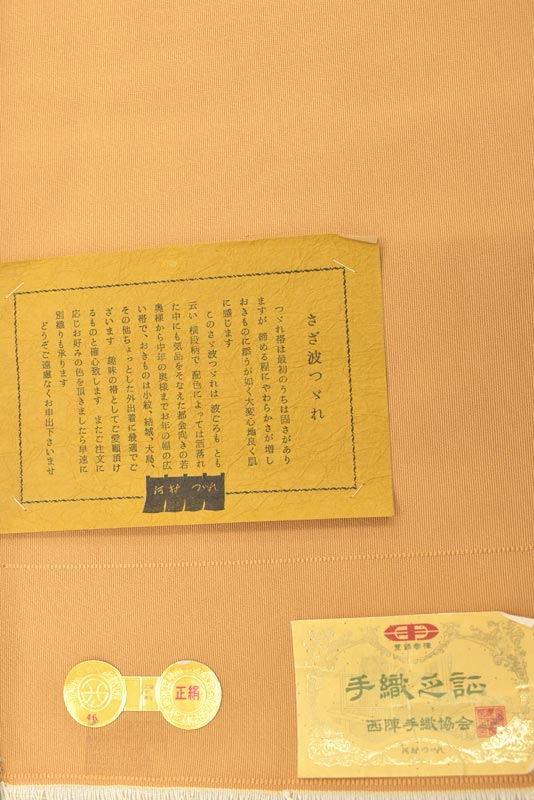 さざ波つゞれ
つゞれ帯は最初のうちは固さがあり
ますが 締める程にやわらかさが増し
おきものに添うが如く大変心地良く肌
に感じます
このさゞ波つゞれは 波ごろも とも
云い 横段柄で 配色によっては洒落れ
た中にも気品をそなえた都会向きの若
奥様から中年の奥様までお年の幅の広
い帯で、おきものは小紋、結城、大島、
その他ちょっとした外出着に最適でご
ざいます 趣味の帯としてご愛顧頂け
るものと確心致します またご注文に
応じお好みの色を頂きましたら早速に
別織りも承ります
どうぞご遠慮なくお申出下さいませ
河村つづれ
登録商標
手織之証
西陣手織協会
河村つづれ
正絹
46